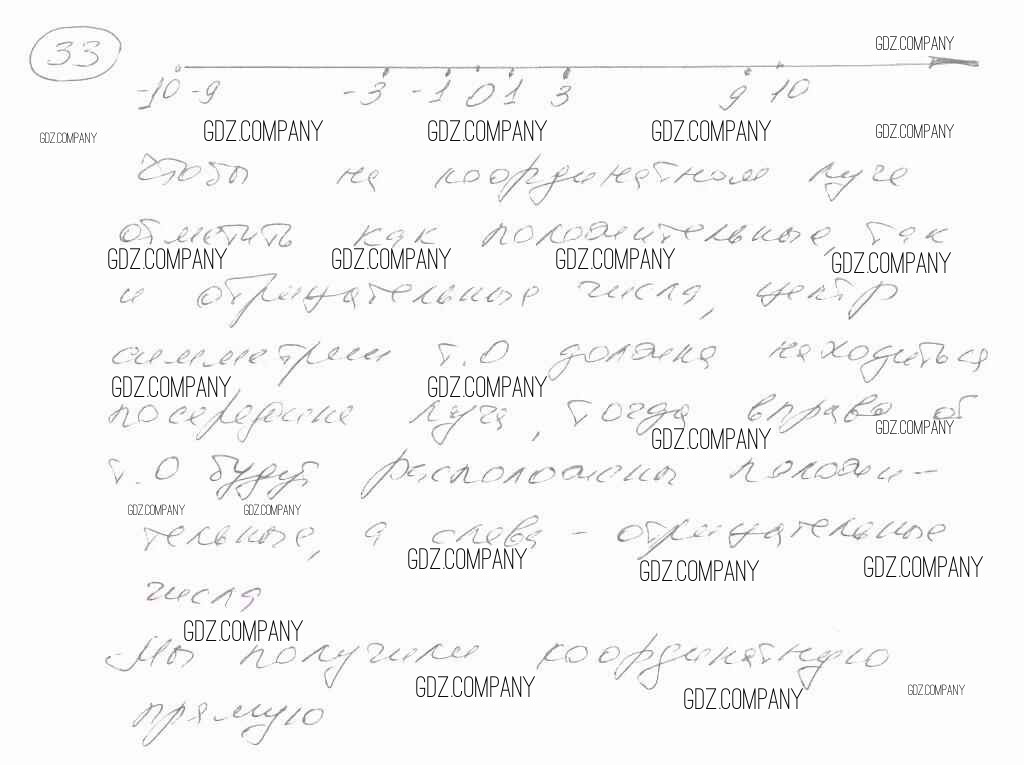 33
GDZ.COMPANY
-10 -9 -3 -1 0 1 3 9 10
GDZ.COMPANY GDZ.COMPANY GDZ.COMPANY GDZ.COMPANY GDZ.COMPANY
Чтобы на координатном луче
отметить как положительные, так
GDZ.COMPANY GDZ.COMPANY GDZ.COMPANY GDZ.COMPANY
и отрицательные числа, центр
симметрии т.О должна находиться
GDZ.COMPANY GDZ.COMPANY
посередине луча, тогда вправо от
GDZ.COMPANY GDZ.COMPANY
т.О будут расположены положи-
GDZ.COMPANY GDZ.COMPANY
тельные, а слева - отрицательные
GDZ.COMPANY GDZ.COMPANY GDZ.COMPANY
числа
GDZ.COMPANY
Мы получили координатную
GDZ.COMPANY GDZ.COMPANY GDZ.COMPANY
прямую